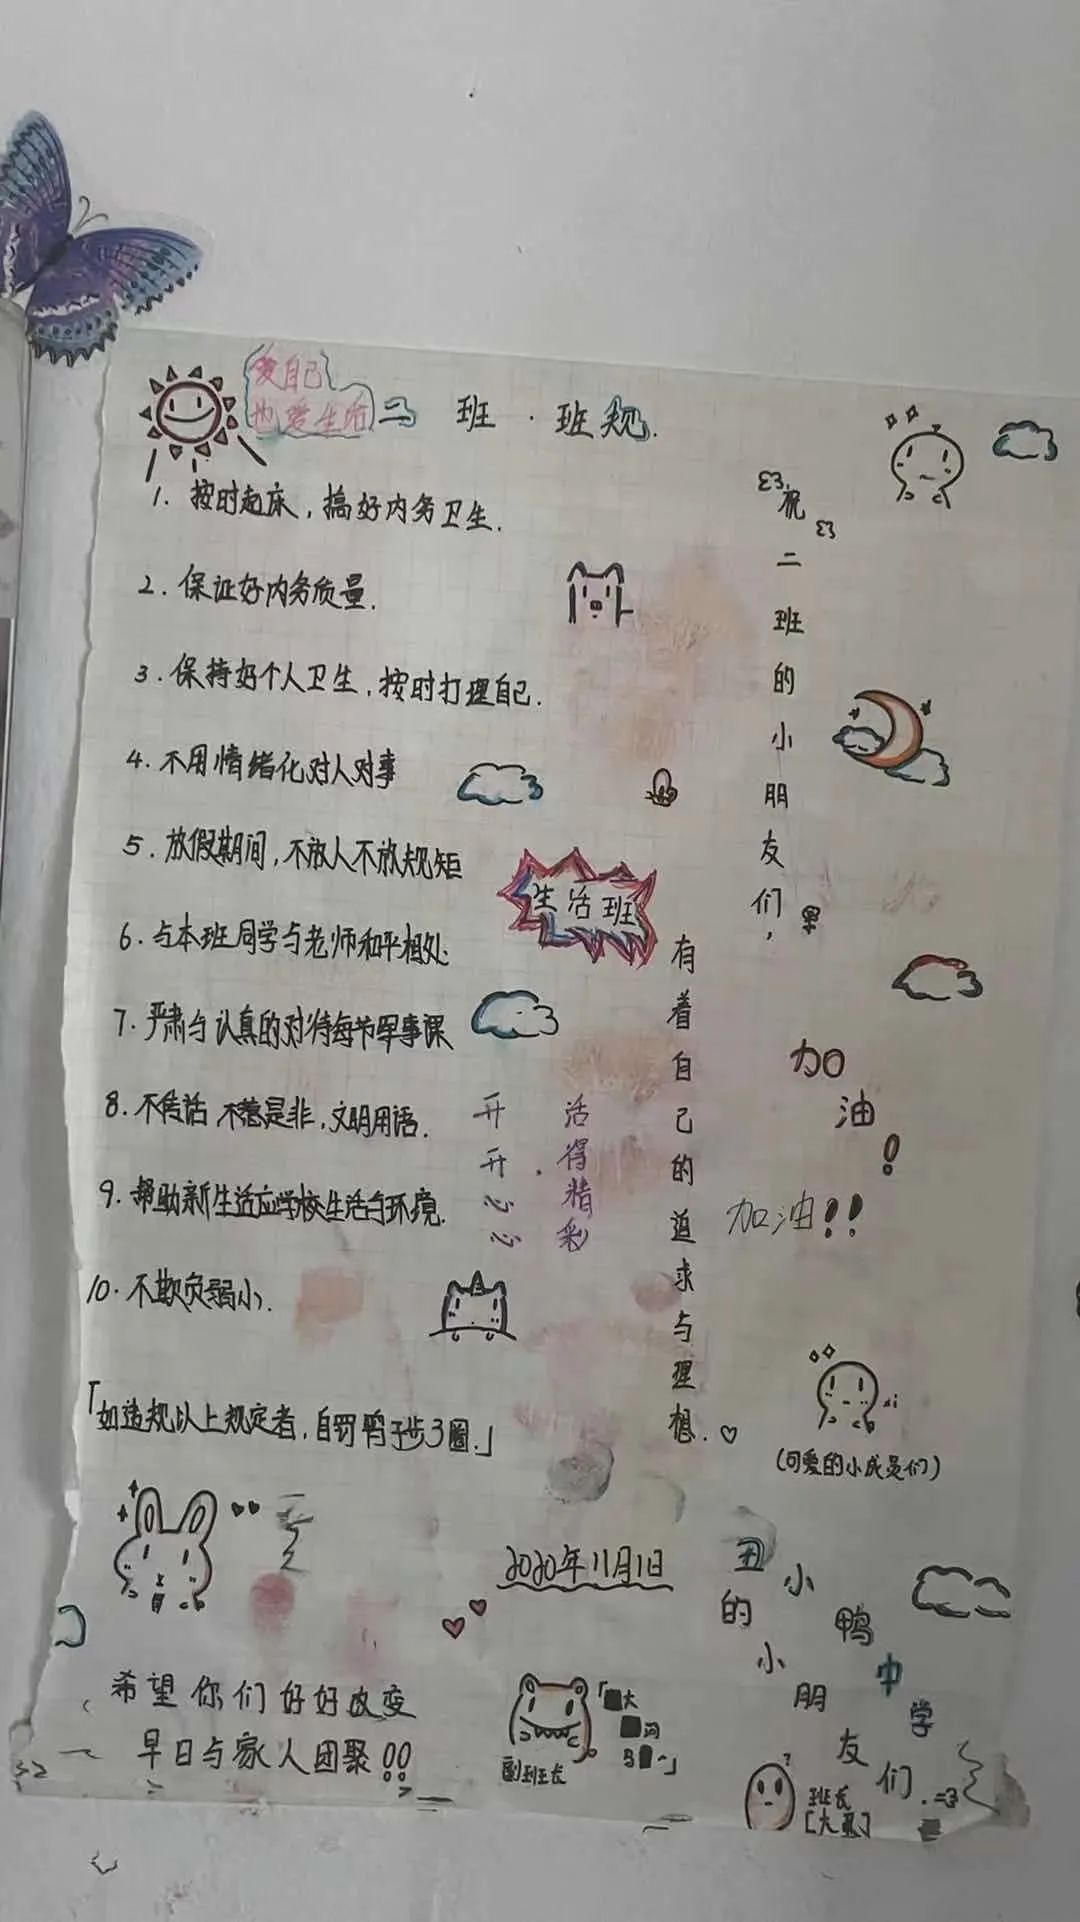 爱自己
也爱生活
二班·班规.
1. 按时起床，搞好内务卫生.
2. 保证好内务质量.
3. 保持好个人卫生，按时打理自己.
4. 不用情绪化对人对事
5. 放假期间，不放人不放规矩
6. 与本班同学与老师和平相处.
7. 严肃与认真的对待每节军事课
8. 不传话 不惹是非，文明用语.
9. 帮助新生适应学校生活与环境.
10. 不欺负弱小.
「如违规以上规定者，自罚鸭子步3圈.」
生活班
开开心心.
活得精彩
祝二班的小朋友们，早
有着自己的追求与理想.
加油!
加油!!
(可爱的小成员们)
2020年11月1日
丑小鸭中学
的小朋友们.
希望你们好好改变
早日与家人团聚!!
副班长
班长